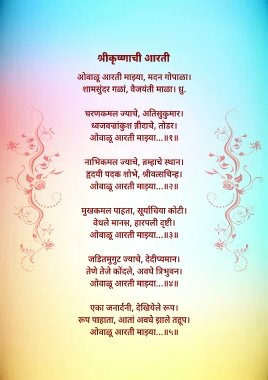 श्रीकृष्णाची आरती
ओवाळू आरती माझ्या, मदन गोपाळा।
शामसुंदर गळां, वैजयंती माळा। धु.
चरणकमल ज्याचे, अतिसुकुमार।
ध्वजवज्रांकुश ब्रीदाचे, तोडर।
ओवाळू आरती माझ्या...॥१॥
नाभिकमल ज्याचे, ब्रम्हाचे स्थान।
हृदयी पदक शोभे, श्रीवत्सचिन्ह।
ओवाळू आरती माझ्या...॥२॥
मुखकमल पाहता, सूर्याचिया कोटी।
वेधले मानस, हारपली दृष्टी।
ओवाळू आरती माझ्या...॥३॥
जडितमुगुट ज्याचे, देदीप्यमान।
तेणे तेजे कोंदले, अवघे त्रिभुवन।
ओवाळू आरती माझ्या...॥४॥
एका जनार्दनी, देखियेले रूप।
रूप पाहाता, आतां अवघे झाले तद्रूप।
ओवाळू आरती माझ्या...॥५॥